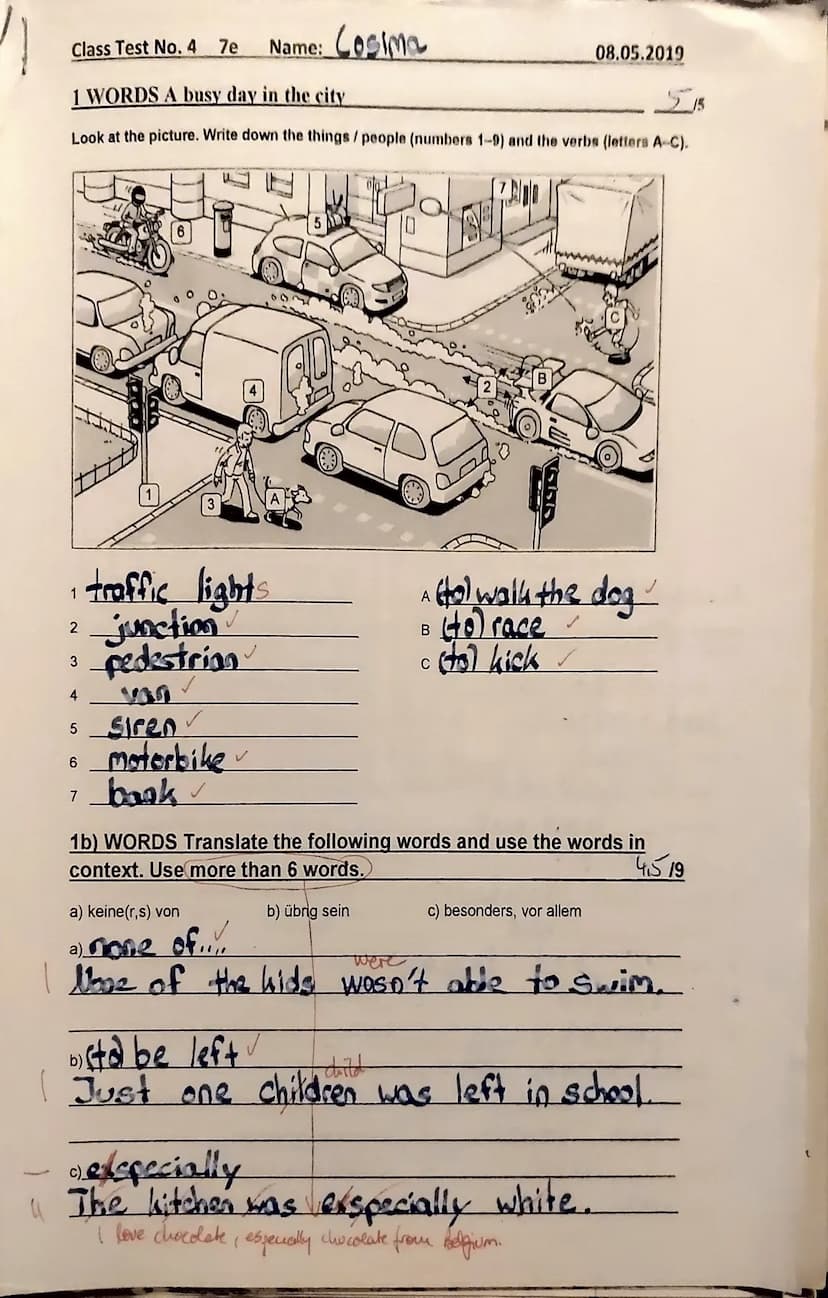 Class Test No. 4 7e Name: Cosima 08.05.2019
1 WORDS A busy day in the city 5/5
Look at the picture. Write down the things / people (numbers 1-9) and the verbs (letters A-C).
7
6
5
C
4
2
B
1
3
A
1 traffic lights
2 junction ✓
3 pedestrian ✓
4 van ✓
5 siren ✓
6 motorbike ✓
7 bank ✓
A (to) walk the dog ✓
B (to) race ✓
C (to) kick ✓
1b) WORDS Translate the following words and use the words in
context. Use more than 6 words. 4,5/9
a) keine(r,s) von b) übrig sein c) besonders, vor allem
a) none of.... ✓
were
None of the kids wasn't able to swim.
b) (to) be left ✓
child
Just one children was left in school.
c) exspecially
The kitchen was exspecially white.
I love chocolate, especially chocolate from Belgium.